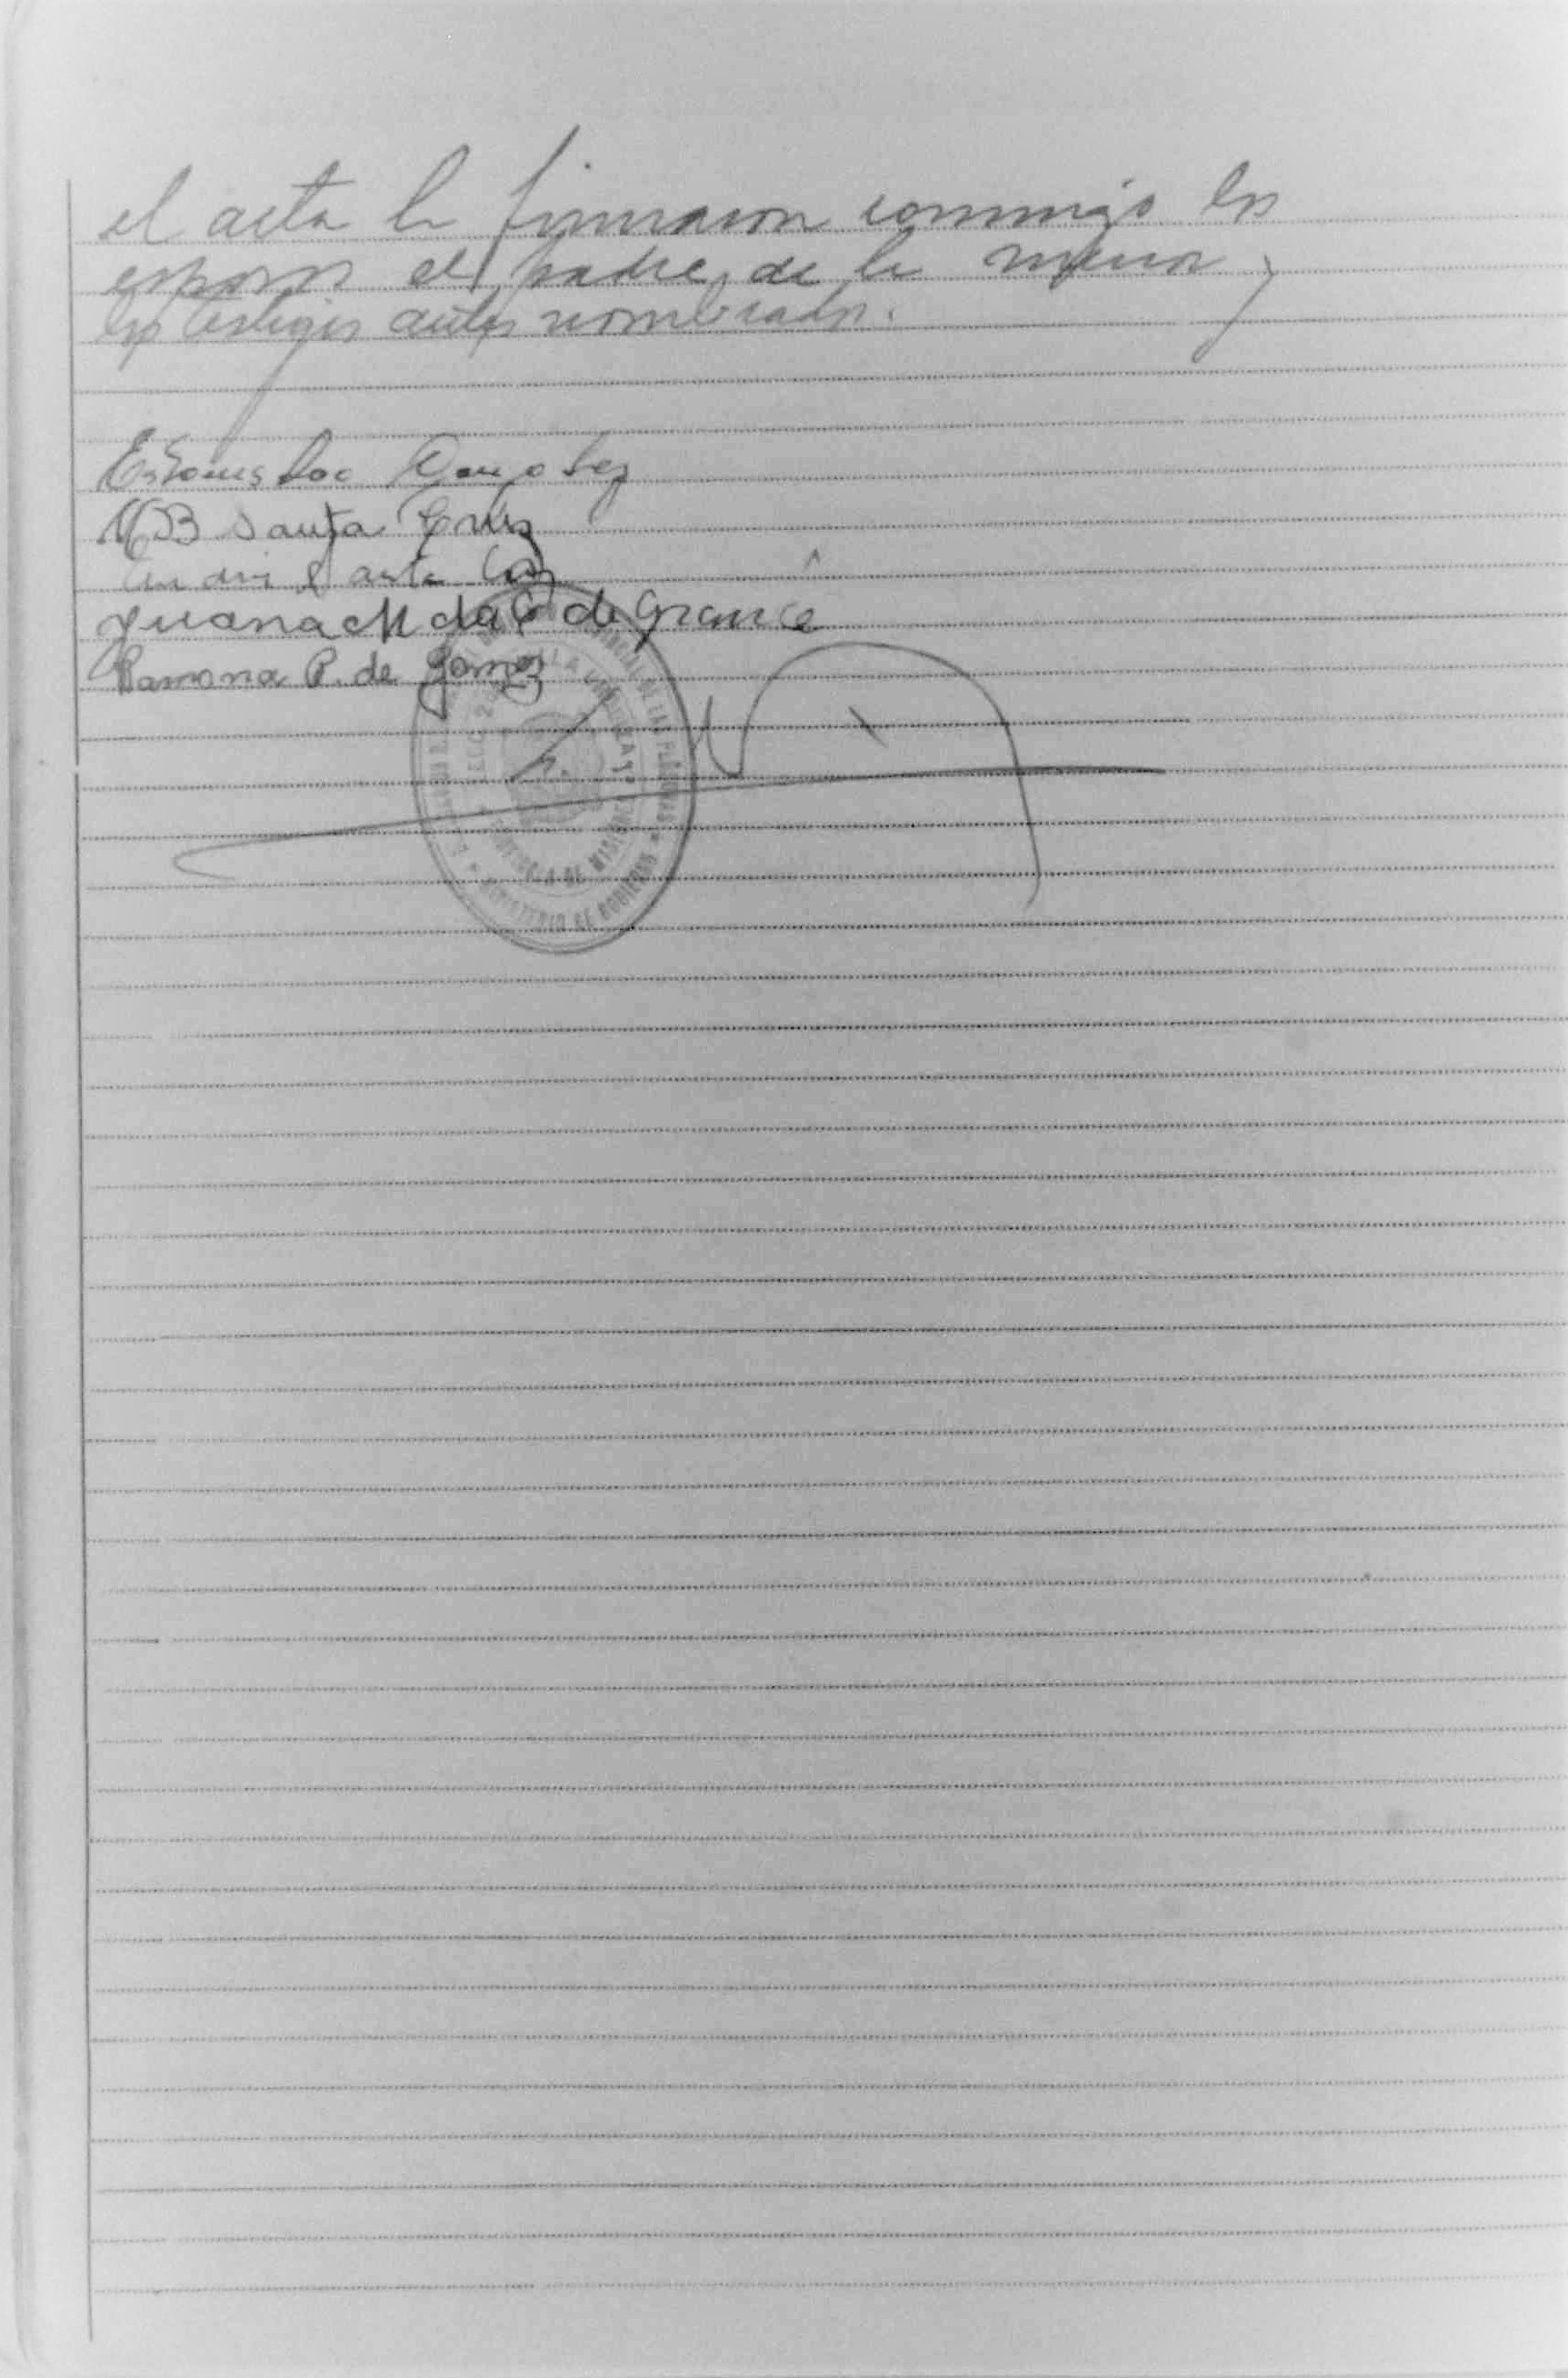 el acta la firmaron conmigo los
esposos el padre de la menor y
los testigos antes nombrados.
Estanislao Gonzalez
M B Santa Cruz
Santa Cruz
Juana M da C de Grance
Ramona P. de Gomez
PROVINCIA DE MISIONES
MINISTERIO DE GOBIERNO